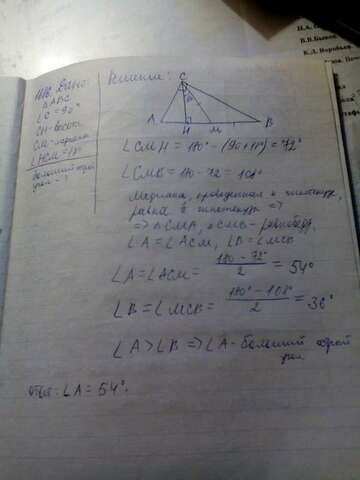 И.А.
В.В.Быков
К.Д. Воробьев
Дано:
△ABC
∠C = 90°
CH - высота
CM - медиана
∠HCM = 18°
больший острый
угол - ?
Решение:
C
A H M B
∠CMH = 180° - (90+18)° = 72°
∠CMB = 180 - 72 = 108°
медиана, проведенная к гипотенузе,
равна ½ гипотенузы =>
=> △CMA, △CMB - равнобедр.
∠A = ∠ACM, ∠B = ∠MCB
∠A = ∠ACM = (180 - 72°)/2 = 54°
∠B = ∠MCB = (180° - 108°)/2 = 36°
∠A > ∠B => ∠A - больший острый
угол
Ответ: ∠A = 54°.